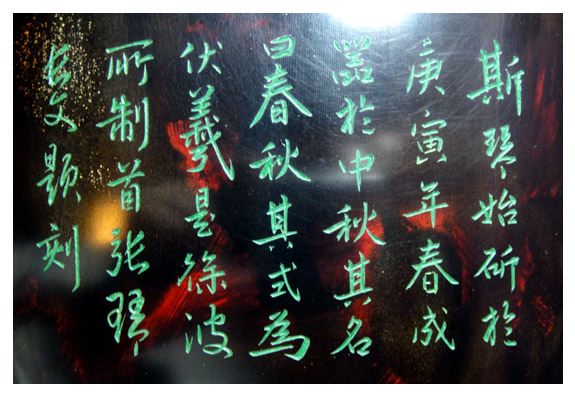 斯琴始斫於
庚寅年春成
器於中秋其名
曰春秋其式為
伏羲是徐波
所制首张琴
长文题刻